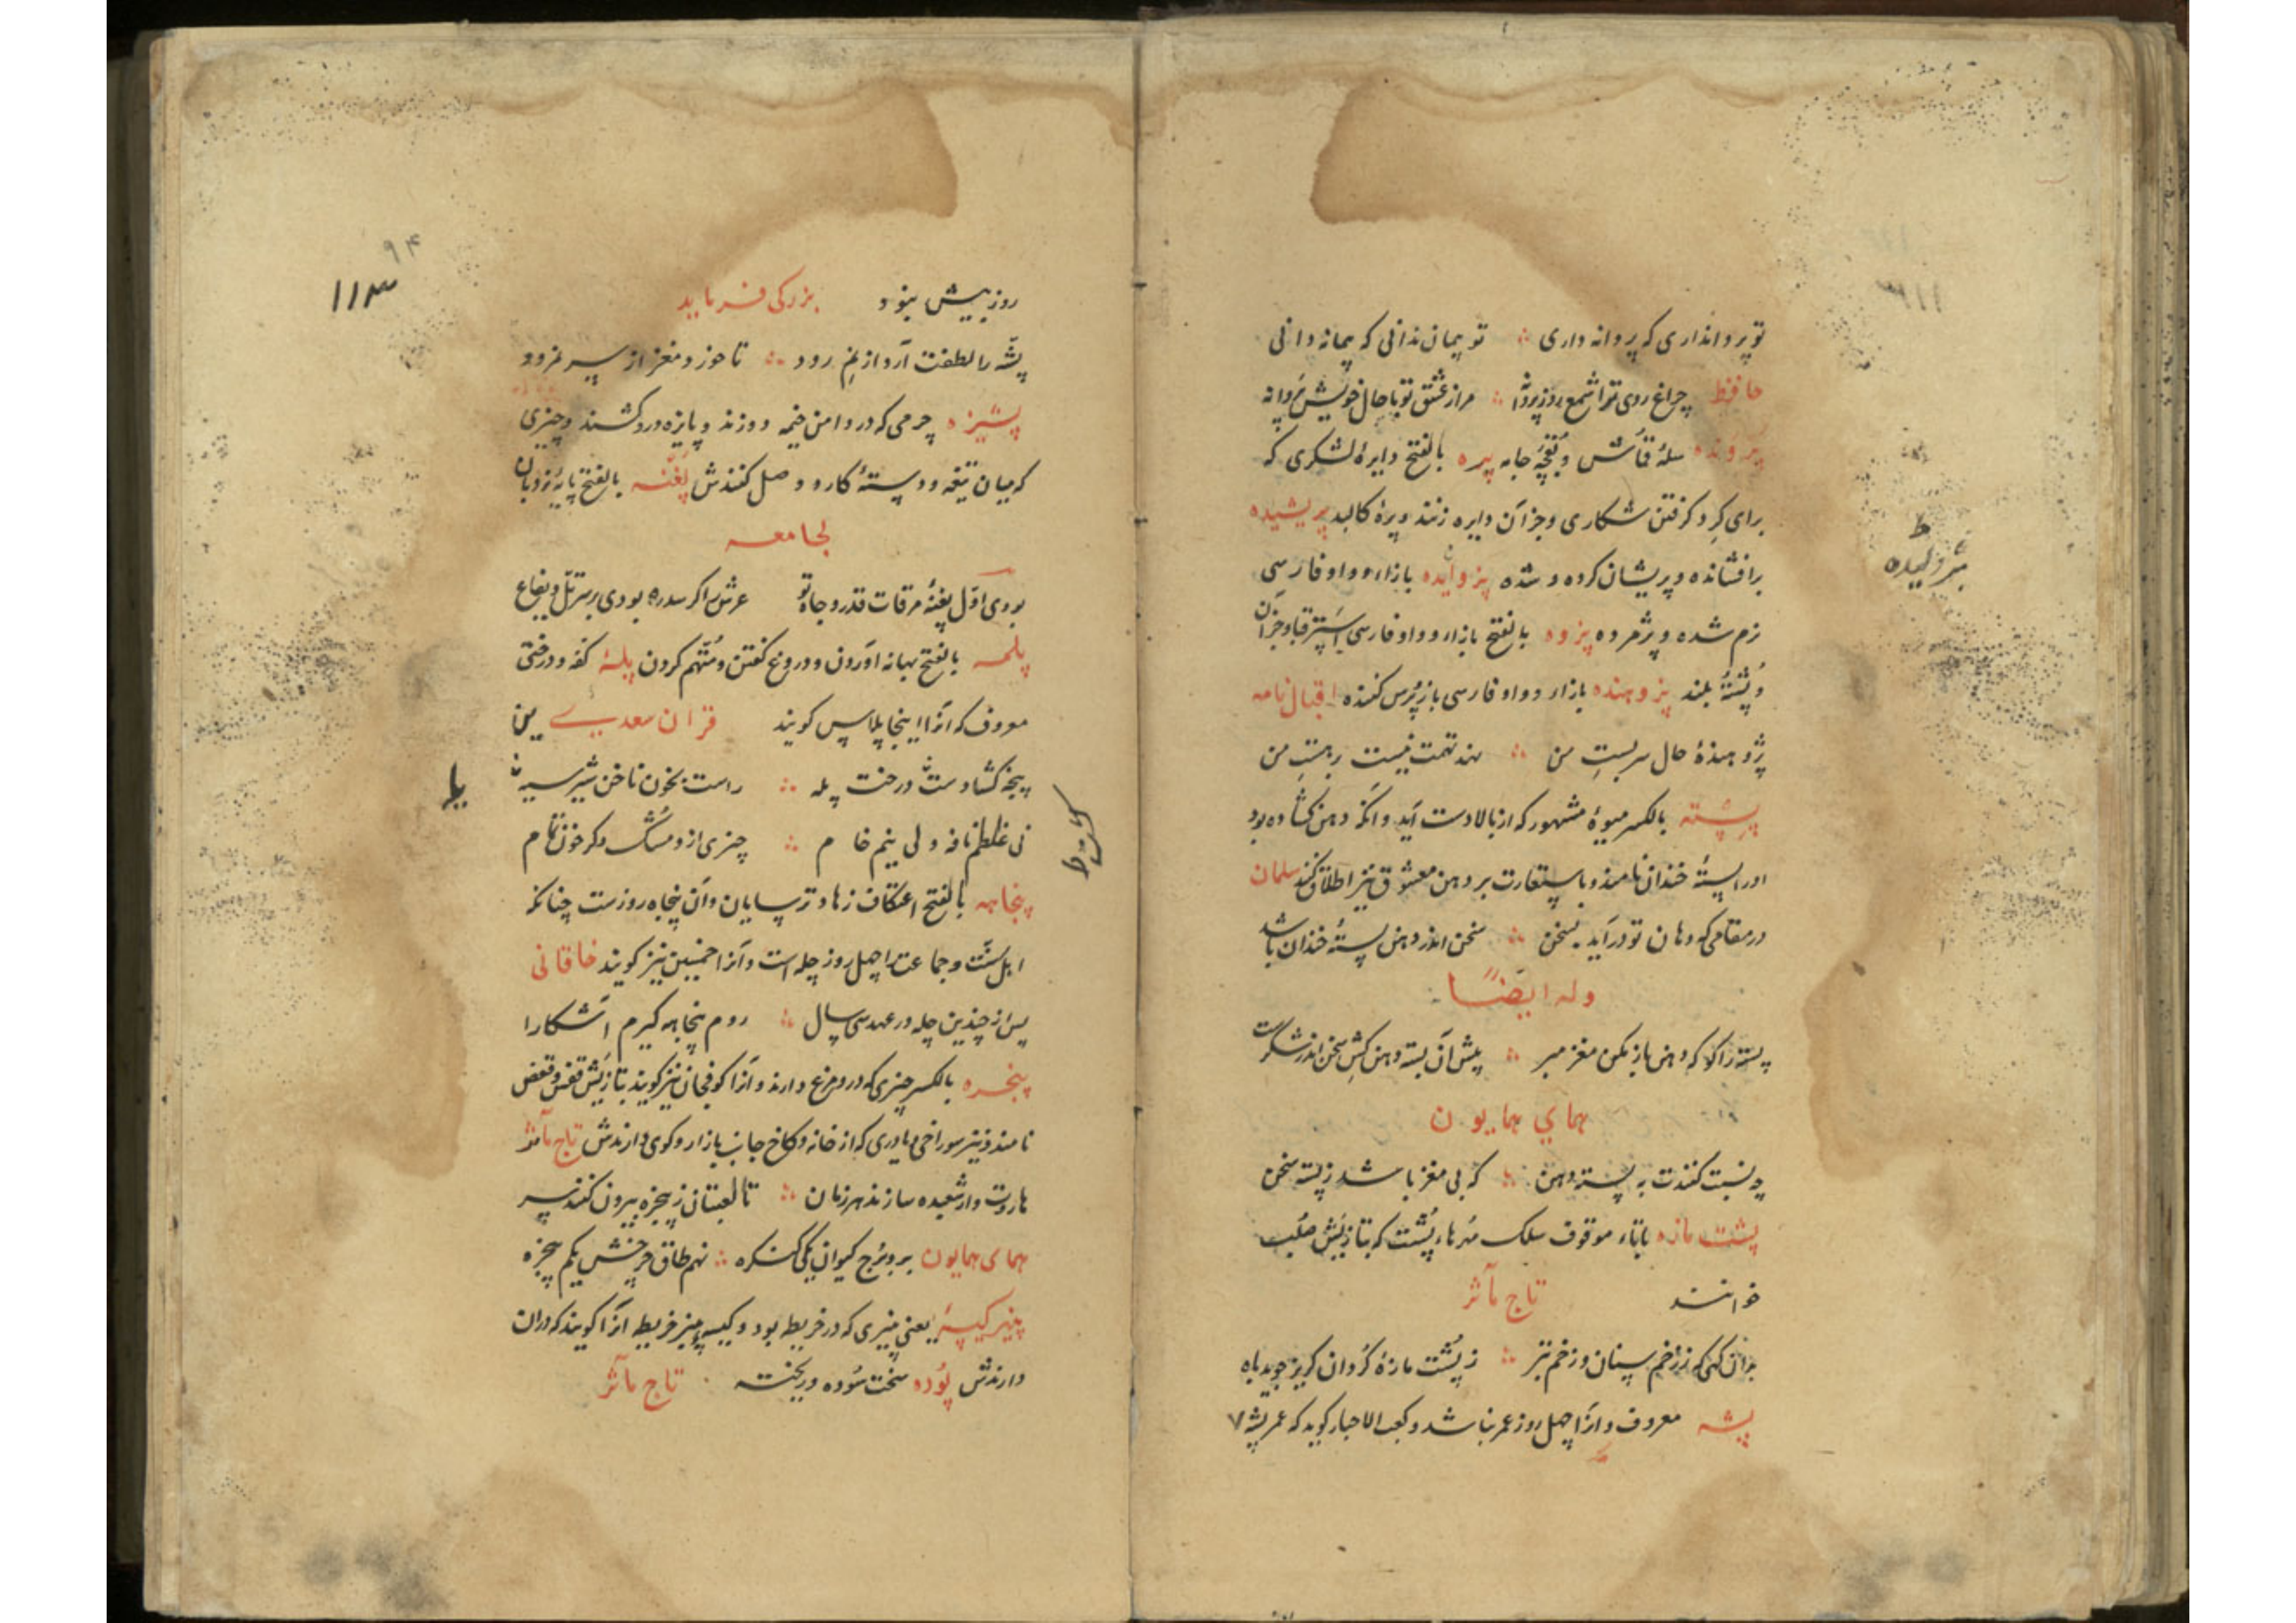 تو پروانداری که پروانه داری ∴ تو پیمان ندانی که پیمانه دانی
حافظ چراغ روی ترا شمع روز پروانه ∴ مرا ز عشق تو با حال خویش پروانه
پرونده سلهٔ قماش و بقچهٔ جامه پره بالفتح دایرهٔ لشکری که
برای گرد گرفتن شکاری و جز آن دایره زنند و پرهٔ کالبد پریشیده
برافشانده و پریشان کرده و شده پژوایده بازا و واو فارسی
نرم شده و پژمرده پزوه بالفتح بازا و واو فارسی استر قبا و جز آن
و پشتهٔ بلند پژوهنده بازا و واو فارسی باز پرس کننده اقبال نامه
پژوهندهٔ حال سربست من ∴ نهد تهمت نیست بر هست من
پسته بالکسر میوهٔ مشهور که از بالا دست آید و آنکه دهن کشاده بود
او را پستهٔ خندان نامند و باستعارت بر دهن معشوق نیز اطلاق کنند سلمان
در مقامی که دهان تو درآید بسخن ∴ سخن اندر دهن پستهٔ خندان باشد
وله ایضًا
پسته را گو که دهن باز مکن مغز مبر ∴ پیش آن پسته دهن کش سخن اندر شکرست
همای همایون
چه نسبت کنندت به پسته دهن ∴ که بی مغز باشد ز پسته سخن
پشت مازه باتاء موقوف سلک مهرهاء پشت که بتازیش صلب
خوانند تاج مآثر
بدان گهی که ز زخم سنان و زخم تبر ∴ ز پشت مازهٔ گردان گریز جوید باه
پشه معروف و او را چهل روز عمر باشد و کعب الاحبار گوید که عمر پشه ۷
پژولیده
۱۱۳
۹۴
روز بیش نبود بزرگی فرماید
پشه را لطفت آرد از نم رود ∴ تا خورد مغز از سر نمرود
پشیزه چرمی که در دامن خیمه دوزند و پایزه درو کشند و چیزی
که میان تیغه و دستهٔ کارد وصل کنندش پغنه بالفتح پایهٔ نردبان
لجامعه
بودی اول پغنهٔ مرقات قدر و جاه تو عرش را گر سدره بودی بر سر تل و یفاع
پلمه بالفتح بهانه آوردن و دروغ گفتن و متهم کردن پله کفه و درختی
معروف که آنرا اینجا پلاس گویند قران سعدین
پنجه گشاده ست درخت پله ∴ راست بخون ناخن شیر سیه
نی غلطم نافه ولی نیم خام ∴ چیزی ازو مشک و دگر خون تمام
پنجاهه بالفتح اعتکاف زهاد ترسایان و آن پنجاه روزست چنانکه
اهل سنت و جماعت را چهل روز چله است و آنرا خمسین نیز گویند خاقانی
پس از چندین چله در عهد سی سال ∴ روم پنجاهه گیرم آشکارا
پنجره بالکسر چیزی که درو مرغ دارند و آنرا کوفجان نیز گویند بتازیش قفس و قفص
نامند و نیز سوراخی و یا دری که از خانه و کاخ جانب بازار و کوی دارندش تاج مآثر
هاروت وار شعبده سازند هر زمان ∴ تا لعبتان ز پنجره بیرون کنند سر
همای همایون برو برج کیوان یکی کنگره ∴ نهم طاق چرخش یکم پنجره
پنیر کیسه یعنی پنیری که در خریطه بود و کیسه پنیر خریطه آنرا گویند که در آن
دارندش پوده سخت سوده و ریخته تاج مآثر